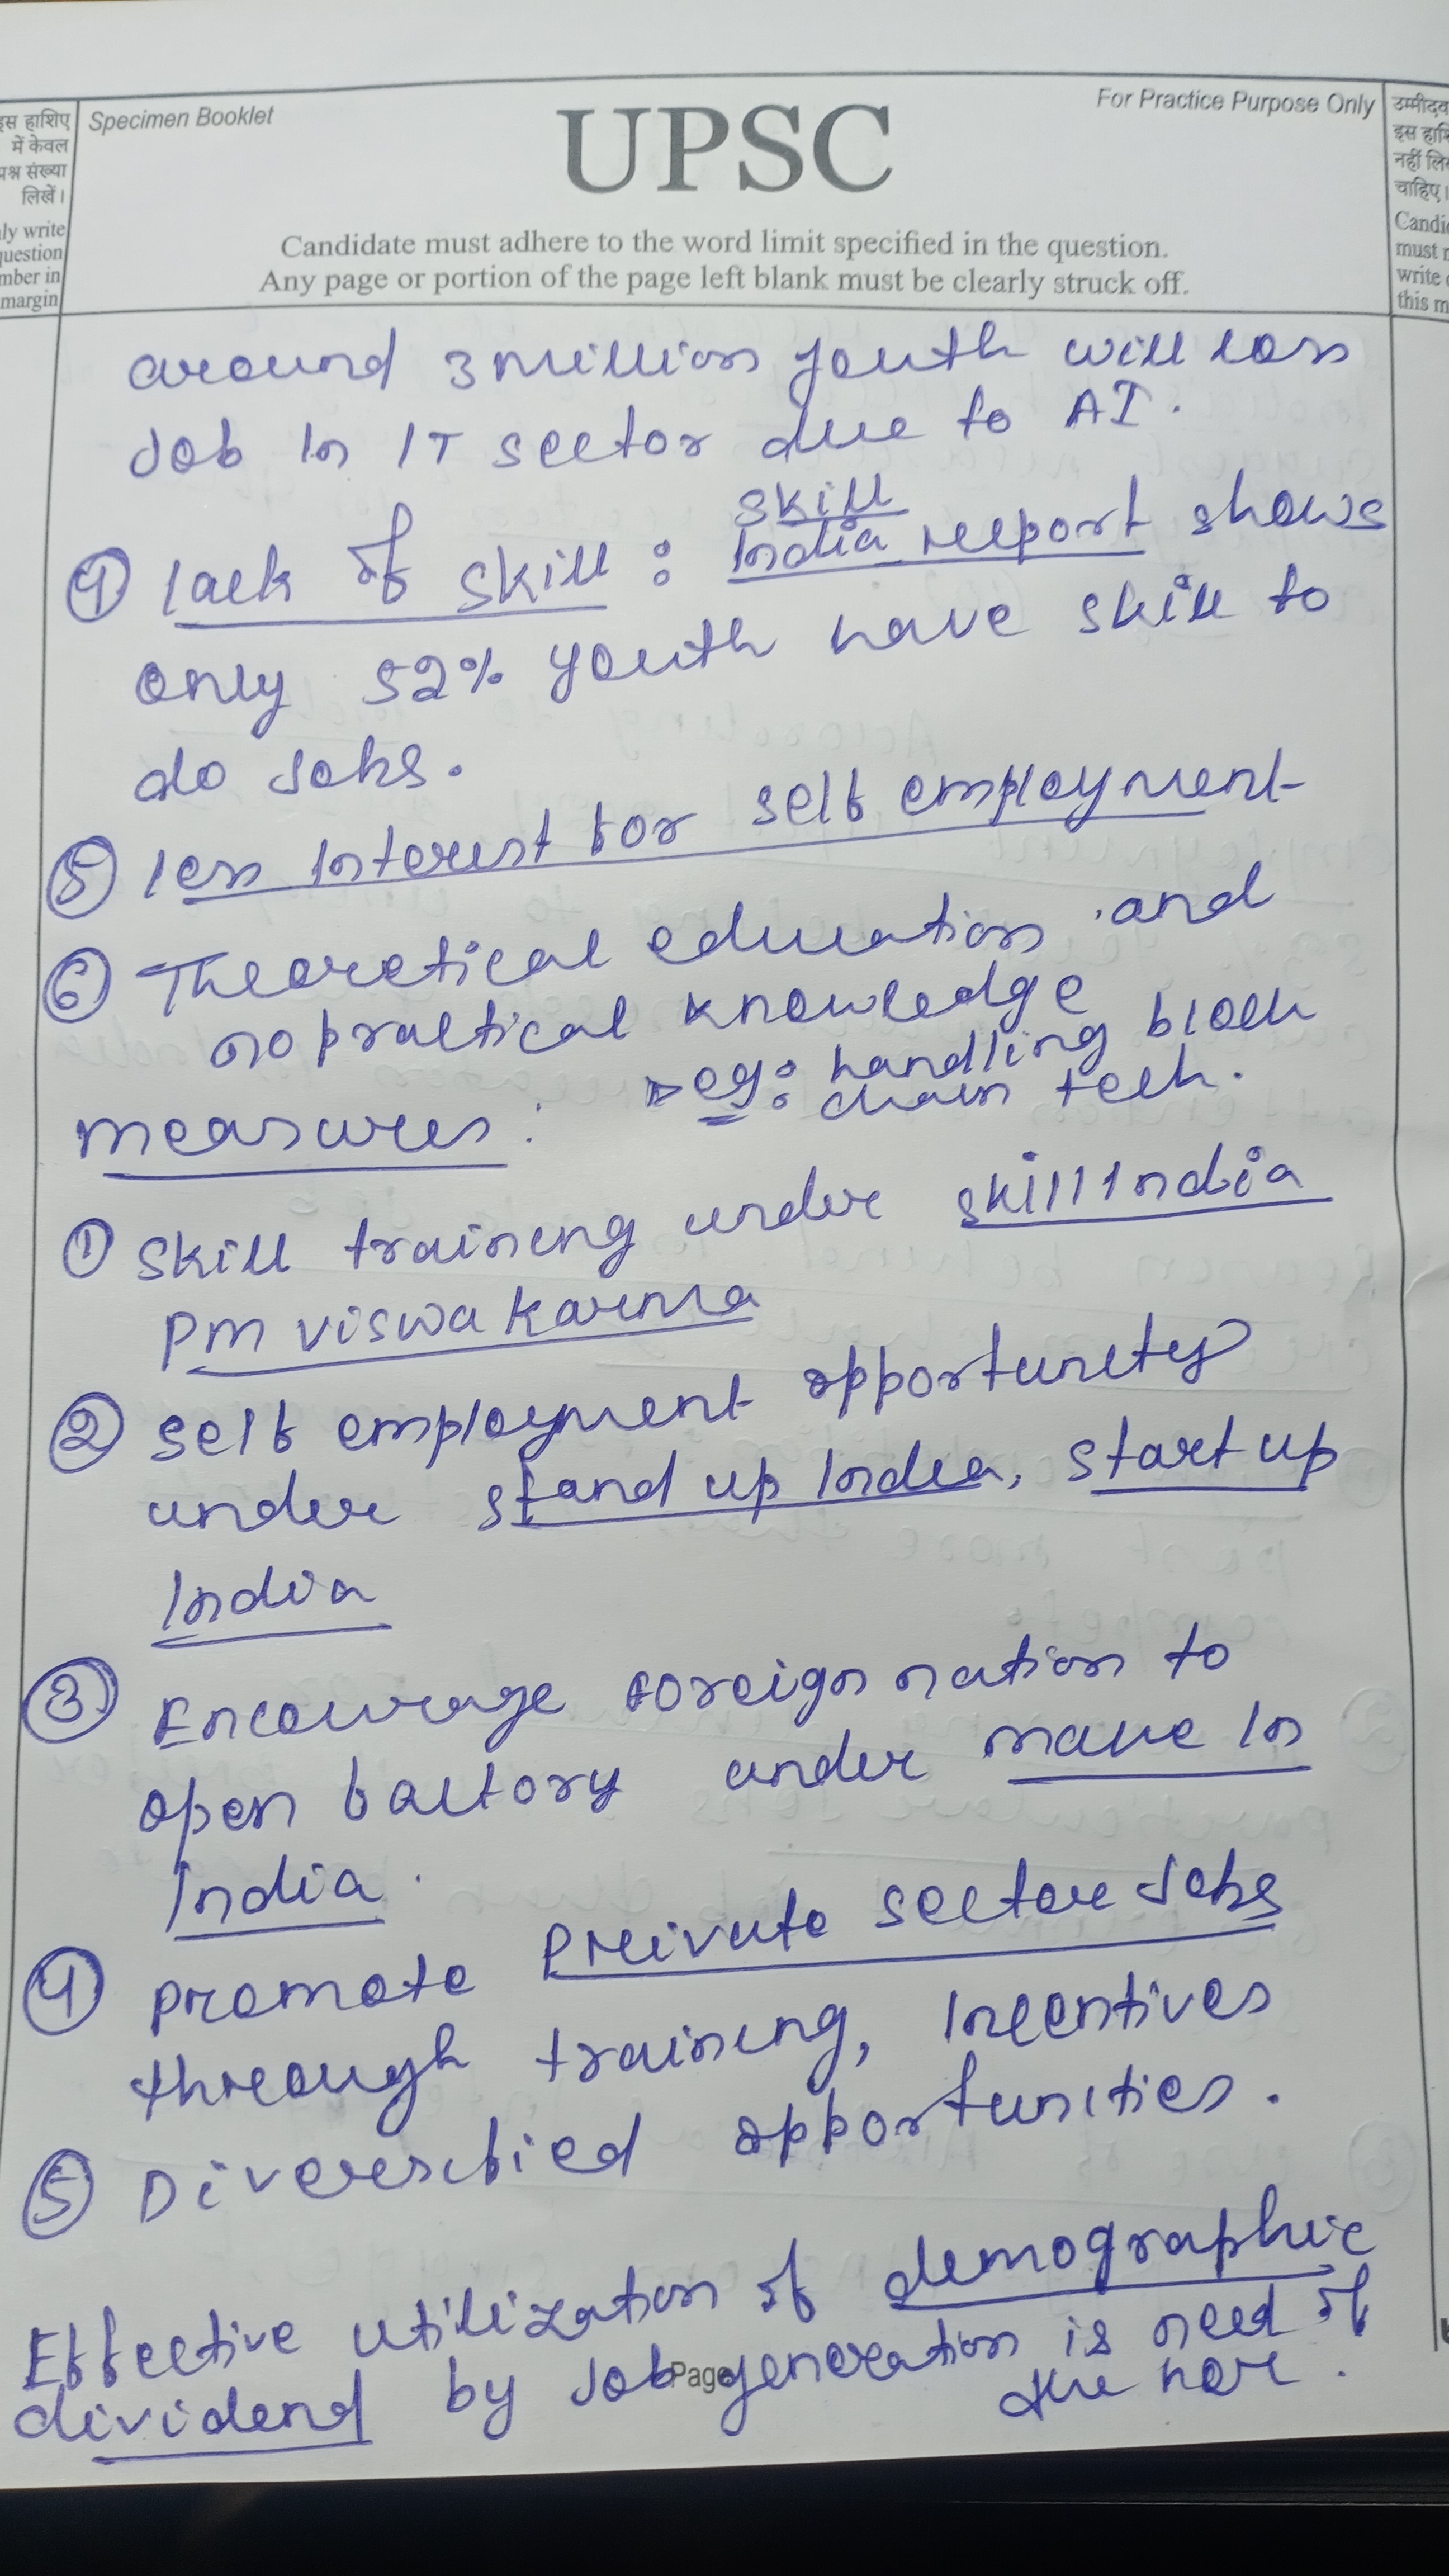 इस हाशिए
में केवल
प्रश्न संख्या
लिखें।
ly write
question
mber in
margin
Specimen Booklet
UPSC
For Practice Purpose Only
Candidate must adhere to the word limit specified in the question.
Any page or portion of the page left blank must be clearly struck off.
उम्मीदव
इस हाशि
नहीं लि
चाहिए।
Candi
must
write
this m
around 3 million youth will loss
Job In IT sector due to AI.
④ lack of skill : Skill India report shows
only 52% youth have skill to
do Jobs.
⑤ less Interest for self employment
⑥ Theoretical education and
no practical knowledge
eg: handling block
chain tech.
measures :
① Skill training under skill India
PM viswakarma
② self employment opportunity
under stand up India, start up
India
③ Encourage foreign nation to
open factory under make In
India.
④ Promote Private sector Jobs
through training, Incentives
⑤ Diversified opportunities.
Effective utilization of demographic
dividend by Job generation is need of
the hore.
Page